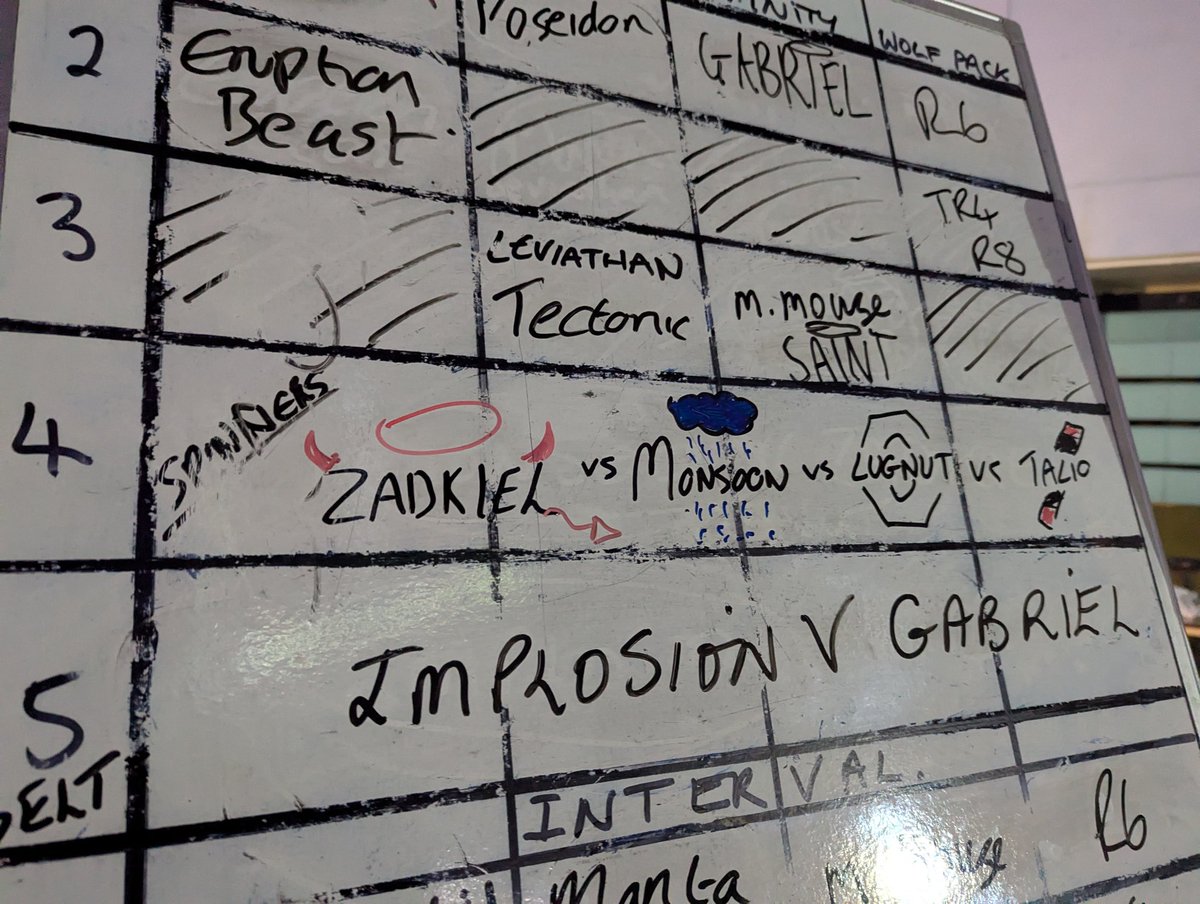 WOLF PACK
2
Eruption
Beast
Poseidon
GABRIEL
R6
3
LEVIATHAN
Tectonic
M. MOUSE
SAINT
TR4
R8
4
SPINNERS
ZADKIEL vs MONSOON vs LUGNUT vs TALIO
5
BELT
IMPLOSION V GABRIEL
INTERVAL.
Manta
R6